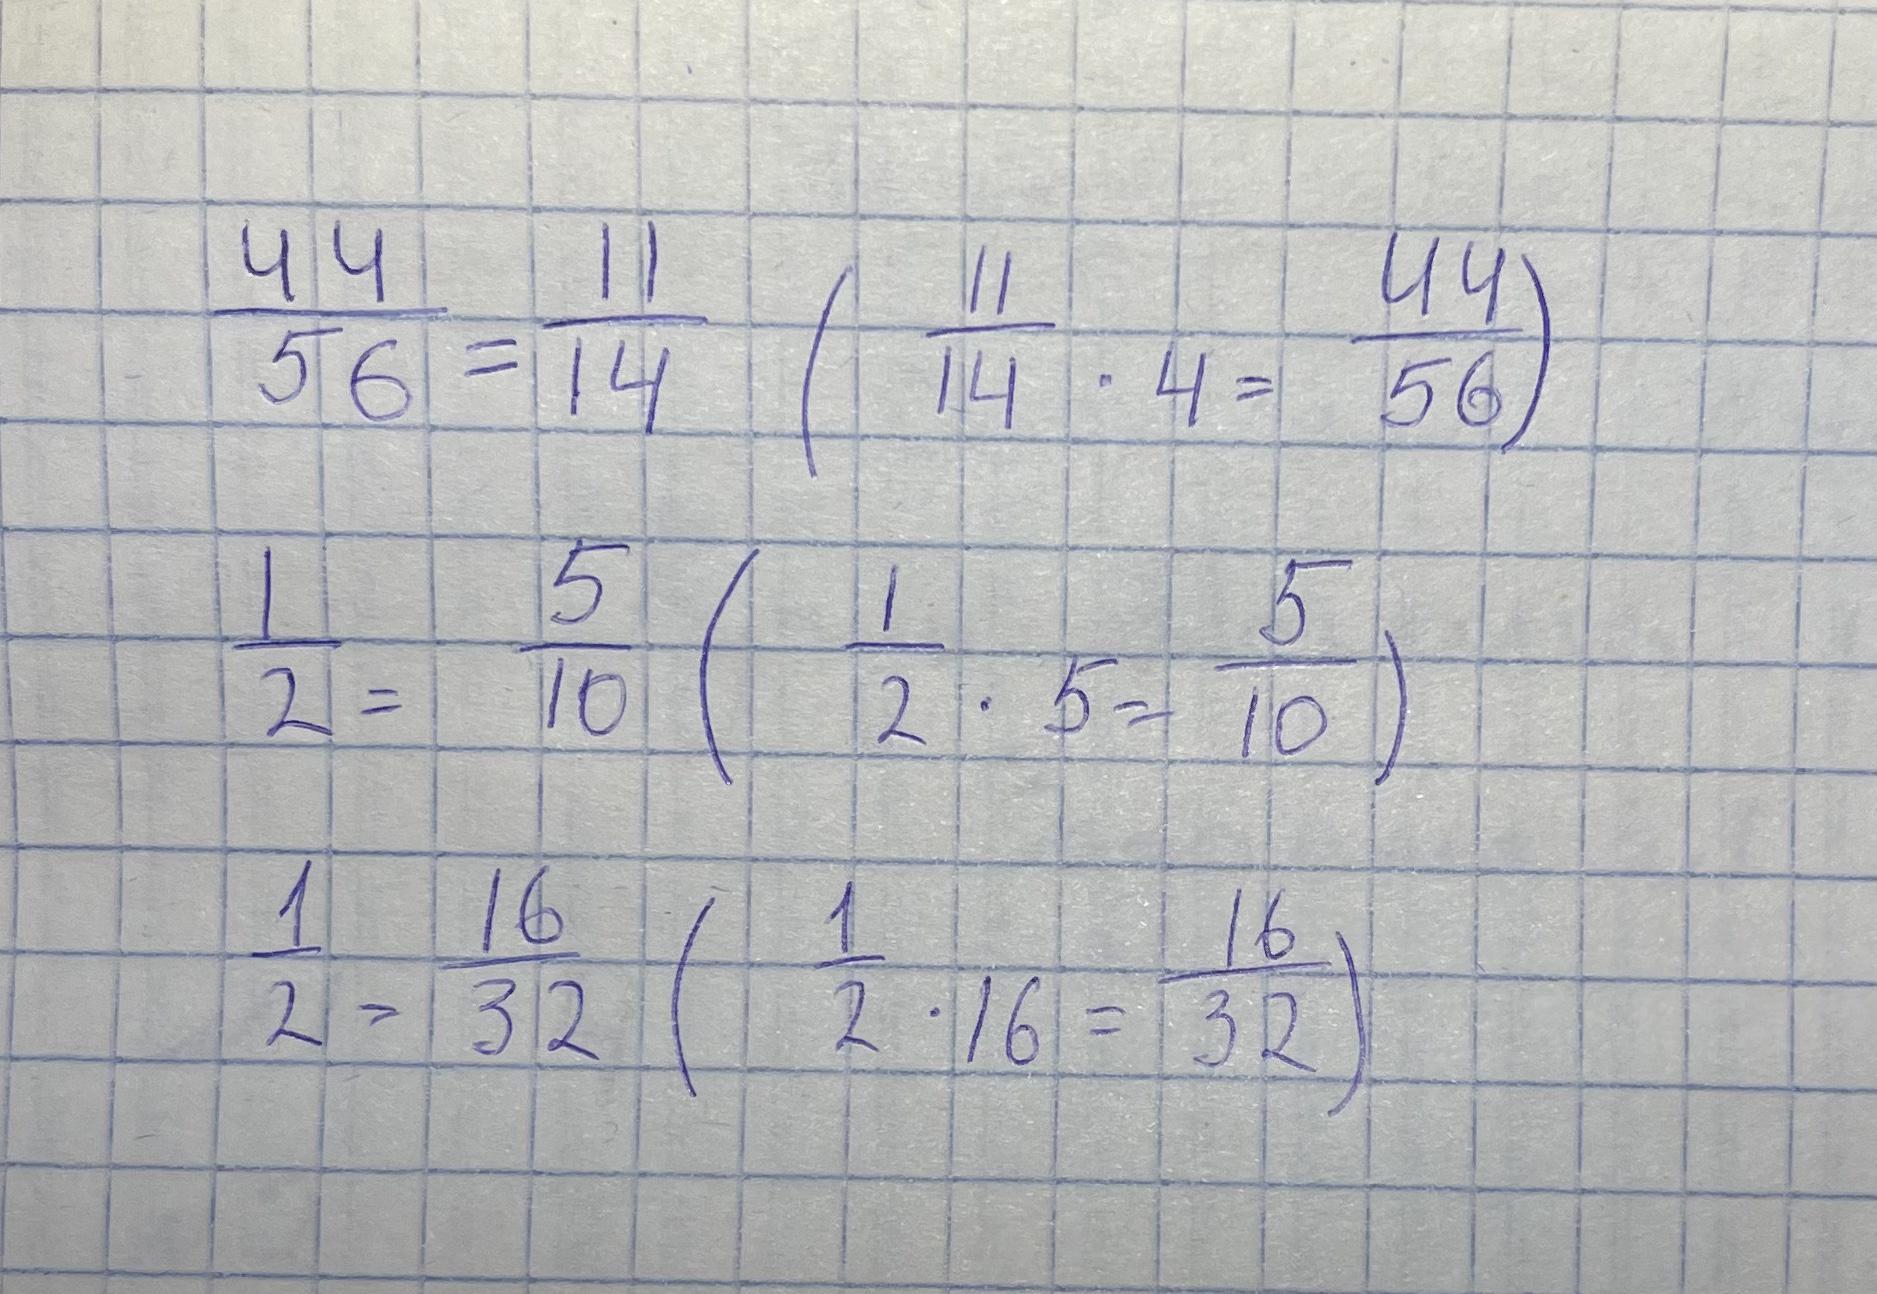 44/56 = 11/14 ( 11/14 · 4 = 44/56 )
1/2 = 5/10 ( 1/2 · 5 = 5/10 )
1/2 = 16/32 ( 1/2 · 16 = 16/32 )